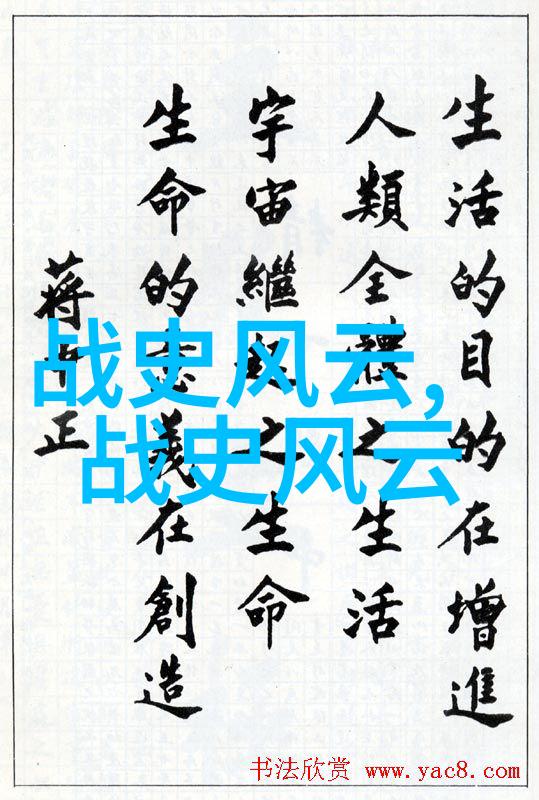 生活的目的在增進
人類全體之生活
宇宙繼起之生命
生命的意義在創造
蔣中正
战史风云,
战史风云
书法欣赏 www.yac8.com